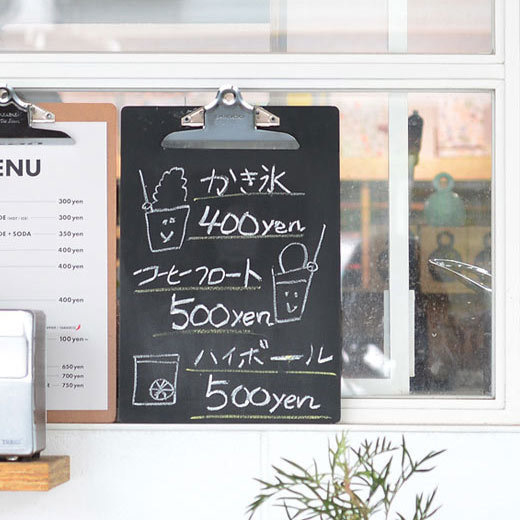 ENU
300yen
DE (HOT / ICE) 300yen
DE + SODA 350yen
400yen
400yen
400yen
100yen
650yen
700yen
750yen
かき氷
400yen
コーヒーフロート
500yen
ハイボール
500yen